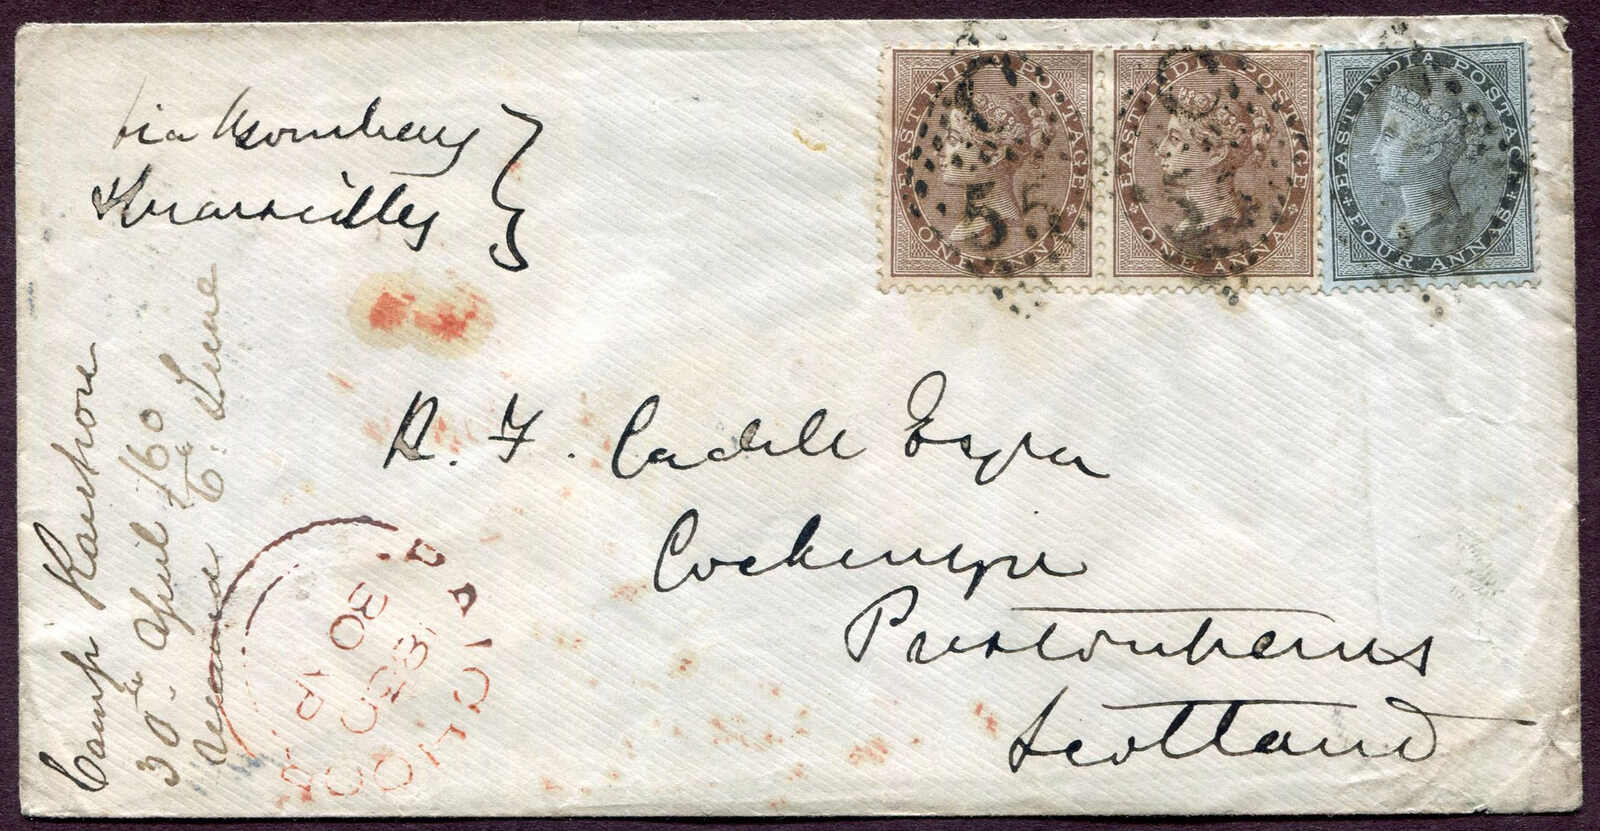 via Bombay
& Marseilles
EAST INDIA POSTAGE
ONE ANNA
5
EAST INDIA POSTAGE
ONE ANNA
EAST INDIA POSTAGE
FOUR ANNAS
R. F. Cadell Esqre
Cockenzie
Prestonpans
Scotland
Camp
30th April /60
received 6th June
30 AP